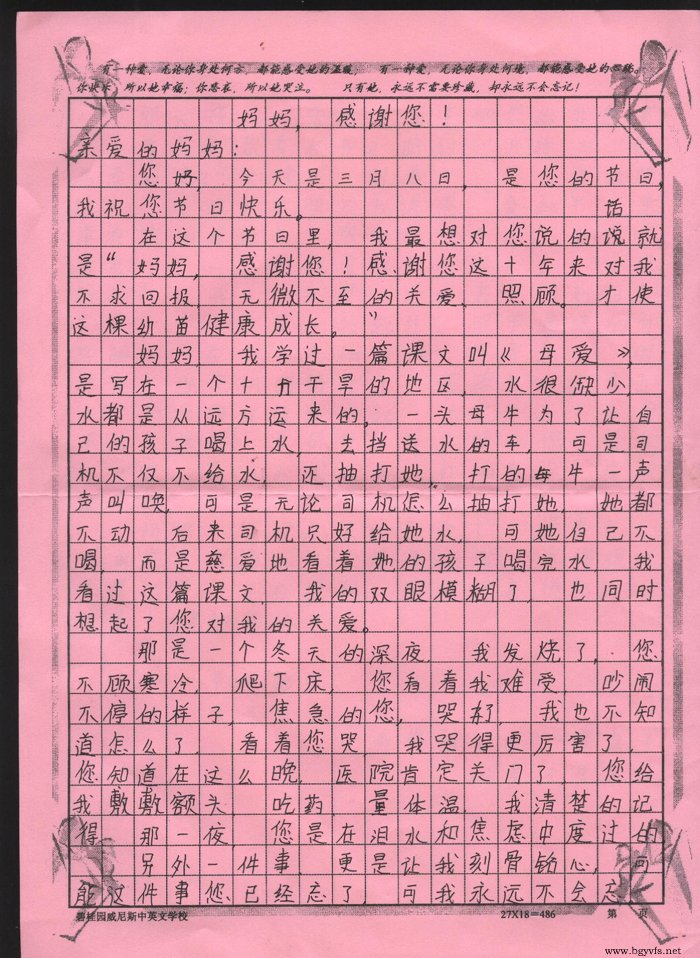 有一种爱，无论你身处何方，都能感受她的温暖。 有一种爱，无论你身处何境，都能感受她的
你快乐，所以她幸福；你悲哀，所以她哭泣。 只有她，永远不需要珍藏，却永远不会忘记！
妈妈，感谢您！
亲爱的妈妈：
您好，今天是三月八日，是您的节日，
我祝您节日快乐。
话
在这个节日里，我最想对您说的说就
是“妈妈，感谢您！感谢您这十年来对我
不求回报，无微不至的关爱、照顾。才使
这棵幼苗健康成长。”
妈妈，我学过一篇课文叫《母爱》，
是写在一个十分干旱的地区，水很缺少，
水都是从远方运来的，一头母牛为了让自
己的孩子喝上水，去挡送水的车，可是司
机不仅不给水，还抽打她，打的母牛一声
声叫唤，可是无论司机怎么抽打她，她都
不动，后来司机只好给她水，可她自己不
喝，而是慈爱地看着她的孩子喝完水，我
看过这篇课文，我的双眼模糊了，也同时
想起了您对我的关爱。
那是一个冬天的深夜，我发烧了，您
不顾寒冷，爬下床，您看着我难受，吵闹
不停的样子，焦急的您，哭了，我也不知
道怎么了，看着您哭，我哭得更厉害了，
您知道在这么晚，医院肯定关门了，您给
我敷敷额头，吃药，量体温，我清楚的记
得，那一夜，您是在泪水和焦虑中度过的
另外一件事，更是让我刻骨铭心，可
能这件事您已经忘了，可我永远不会忘
碧桂园威尼斯中英文学校 27X18＝486 第 页
www.bgyvfs.net